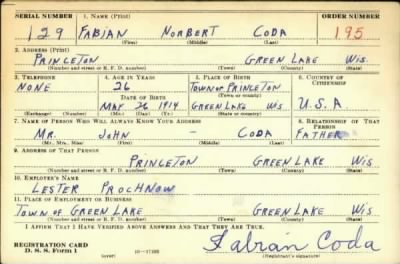 SERIAL NUMBER 1. NAME (Print) ORDER NUMBER
129 FABIAN NORBERT CODA 195
(First) (Middle) (Last)
2. ADDRESS (Print)
PRINCETON GREEN LAKE WIS.
(Number and street or R. F. D. number) (Town) (County) (State)
3. TELEPHONE 4. AGE IN YEARS 5. PLACE OF BIRTH 6. COUNTRY OF CITIZENSHIP
NONE 26 TOWN OF PRINCETON
DATE OF BIRTH (Town or county)
MAY 26 1914 GREEN LAKE WIS U.S.A
(Exchange) (Number) (Mo.) (Day) (Yr.) (State or country)
7. NAME OF PERSON WHO WILL ALWAYS KNOW YOUR ADDRESS 8. RELATIONSHIP OF THAT PERSON
MR. JOHN - CODA FATHER
(Mr., Mrs., Miss) (First) (Middle) (Last)
9. ADDRESS OF THAT PERSON
PRINCETON GREEN LAKE WIS
(Number and street or R. F. D. number) (Town) (County) (State)
10. EMPLOYER'S NAME
LESTER PROCHNOW
11. PLACE OF EMPLOYMENT OR BUSINESS
TOWN OF GREEN LAKE GREEN LAKE WIS
(Number and street or R. F. D. number) (Town) (County) (State)
I AFFIRM THAT I HAVE VERIFIED ABOVE ANSWERS AND THAT THEY ARE TRUE.
REGISTRATION CARD
D. S. S. Form 1 (over) Fabian Coda
(Registrant's signature)